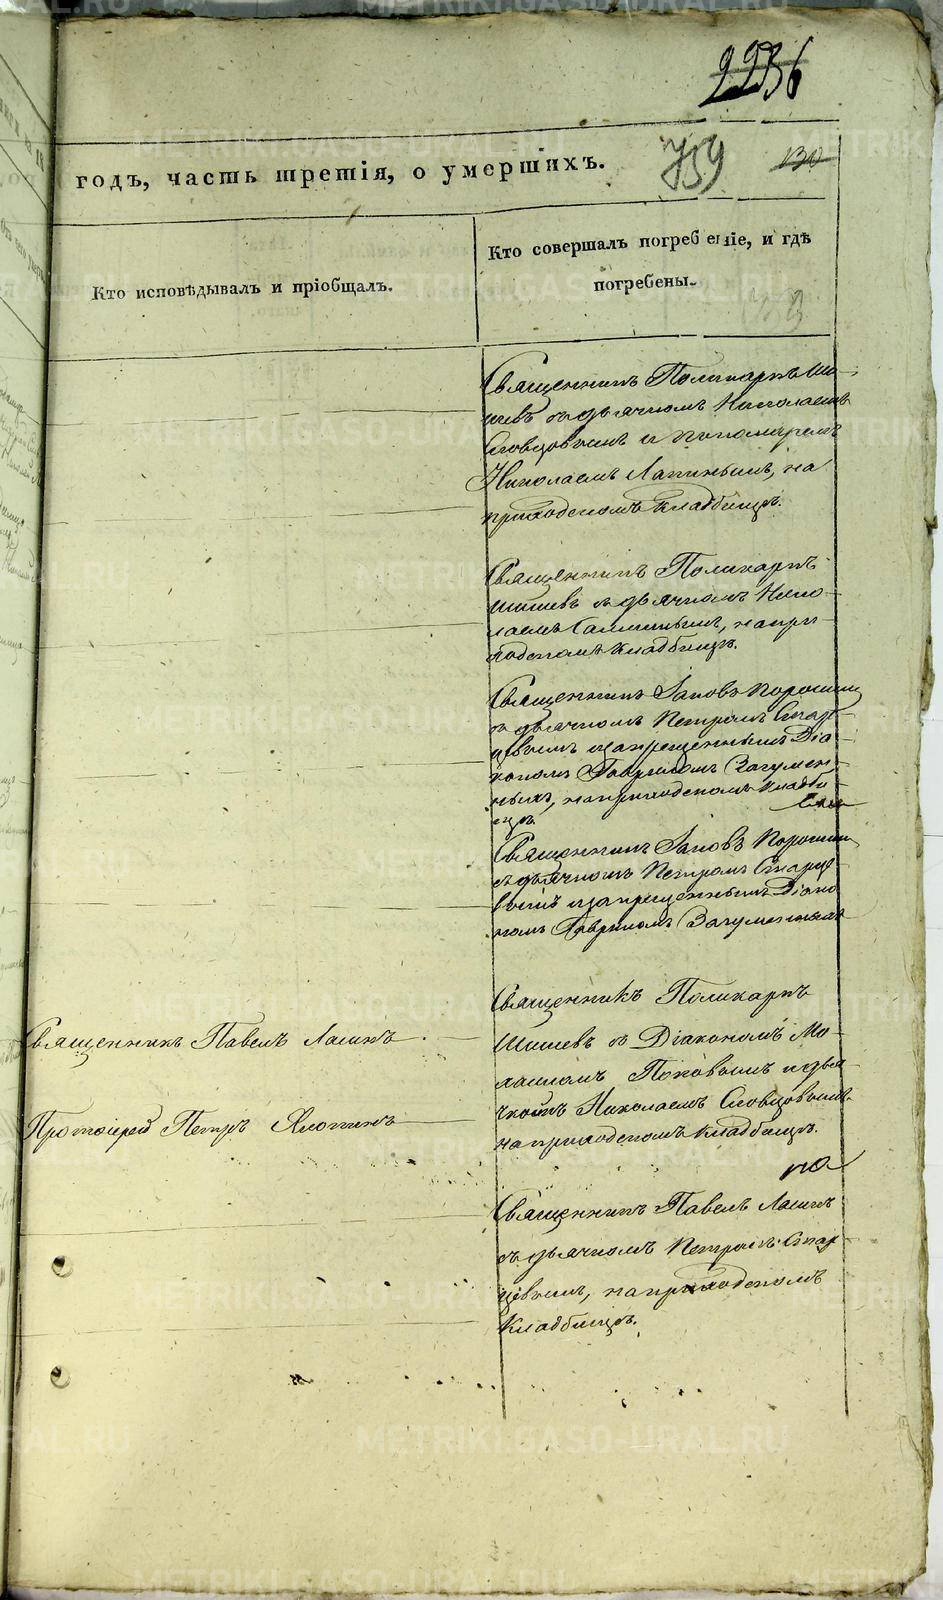 2236
годъ, часть третія, о умершихъ.
759
130
Кто исповѣдывалъ и пріобщалъ.
Кто совершалъ погребеніе, и гдѣ
погребены.
Священникъ Поликарпъ Ши-
шевъ съ дьячкомъ Николаемъ
Словцовымъ и пономаремъ
Николаемъ Лапинымъ, на
приходскомъ кладбищѣ.
Священникъ Поликарпъ
Шишевъ съ дьячкомъ Нико-
лаемъ, на при-
ходскомъ кладбищѣ.
Священникъ Іаковъ Порошин
съ дьячкомъ Петромъ Стар-
цевымъ и запрещеннымъ Діа-
кономъ Гавриломъ Загумен-
ныхъ, на приходскомъ кладби-
щѣ.
Священникъ Іаковъ Порошин
съ дьячкомъ Петромъ Старце
вымъ и запрещеннымъ Діако
номъ Гавриломъ Загуменныхъ
Священникъ Поликарпъ
Шишевъ съ Діакономъ Ми-
хаиломъ Поповымъ и дья-
чкомъ Николаемъ Словцовымъ
на приходскомъ кладбищѣ.
Священникъ Павелъ
Протоіерей Петръ
Священникъ Павелъ
съ дьячкомъ Петромъ Стар-
цевымъ, на приходскомъ
кладбищѣ.
METRIKI.GASO-URAL.RU